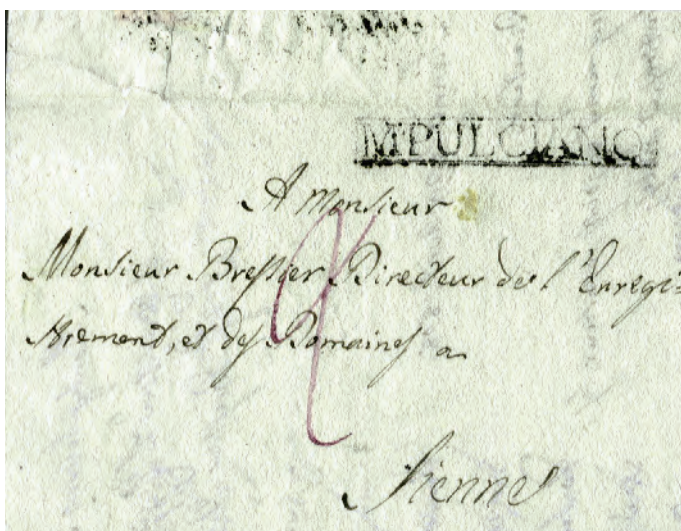 MPULCIANO
A Monsieur
Monsieur Bressier Directeur de l'Enregi=
strement, et des Domaines a
Sienne